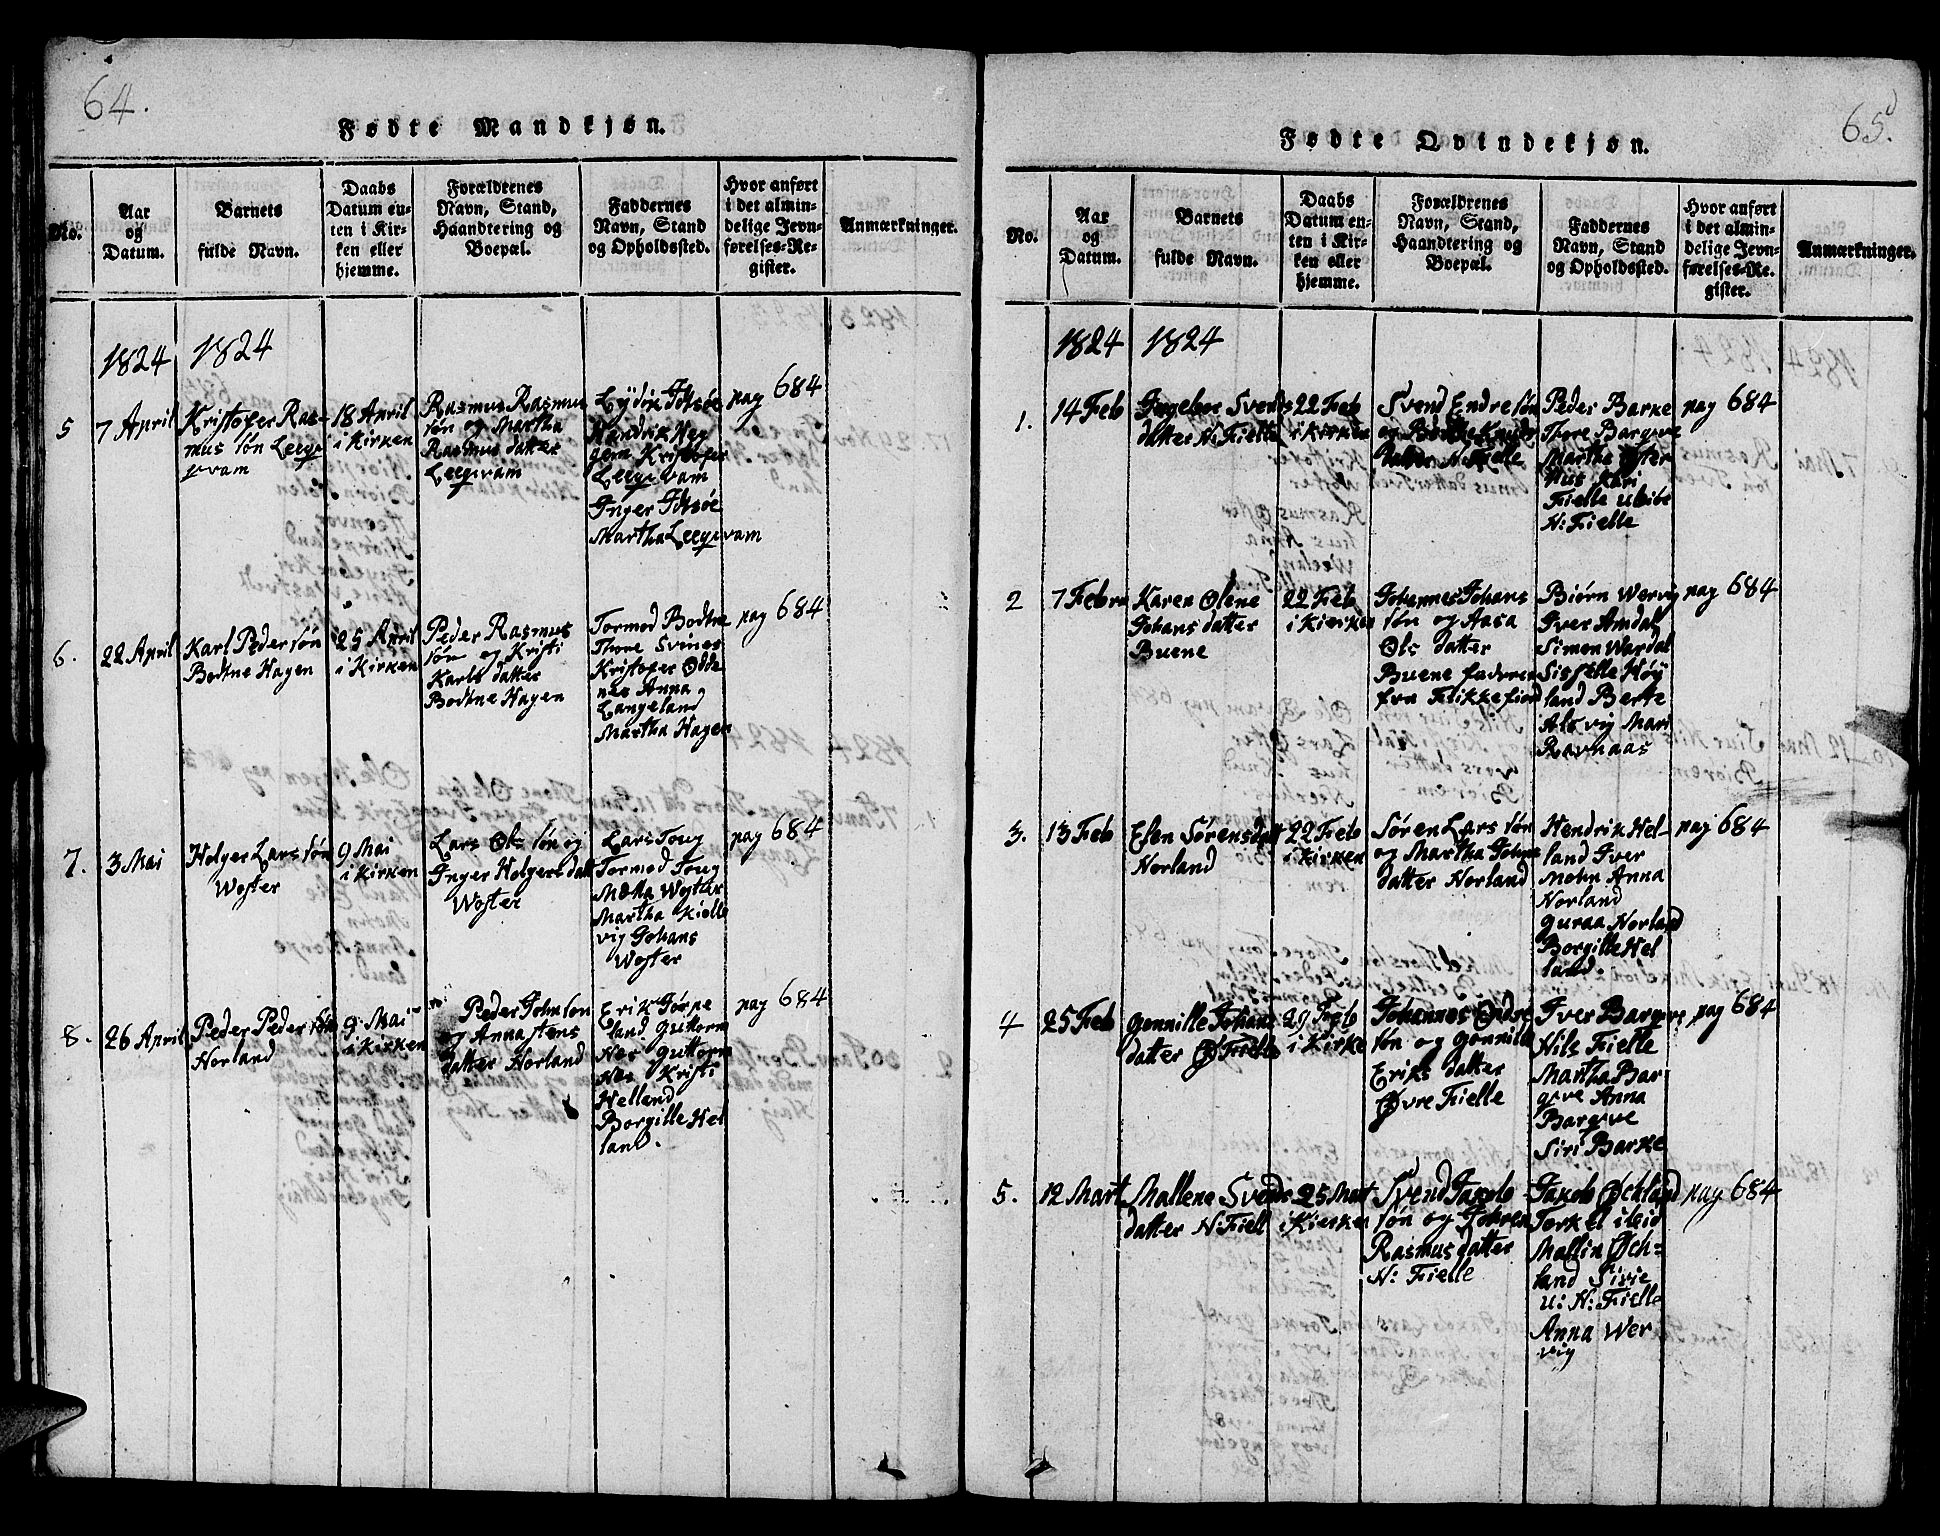 64.
Fødte Mandkjøn.
No.
Aar
og
Datum.
Barnets
fulde Navn.
Daabs
Datum en-
ten i Kir-
ken eller
hjemme.
Forældrenes
Navn, Stand,
Haandtering og
Boepæl.
Faddernes
Navn, Stand
og Opholdssted.
Hvor anført
i det almin-
delige Jevn-
førelses-Re-
gister.
Anmærkninger.
1824
1824
5
7 April
Kristofer Ras-
mus søn Leeg
qvam
18 April
i Kirken
Rasmus Rasmus
søn og Martha
Rasmus datter
Leeqvam
Lydik
Hendrik Heg
gem Kristofer
Leeg qvam
Inger
Martha Leeqvam
pag 684
6.
22 April
Karl Peder søn
Bodtne Hagen
25 April
i Kirken
Peder Rasmus
søn og Kristi
Karls datter
Bodtne Hagen
Tormod Bodtne
Thore Svines
Kristofer Odde
nes Anna
Langeland
Martha Hagen
pag 684
7.
3 Mai
Holger Lars søn
Woster
9 Mai
i Kirken
Lars Ols søn og
Inger Holgers datt
Woster
Lars Toug
Tormod Toug
Woster
Martha Kielle
vig Johans
Woster
pag 684
8.
26 April
Peder Peder søn
Norland
9 Mai
i Kirken
Peder John søn
og Anna stens
datter Norland
Erik Jørpe
land Guttorm
Nes Guttorm
Nes Kristi
Helland
Borgille Hel
land.
pag 684
65.
Fødte Qvindekjøn.
No.
Aar
og
Datum.
Barnets
fulde Navn.
Daabs
Datum en-
ten i Kir-
ken eller
hjemme.
Forældrenes
Navn, Stand,
Haandtering og
Boepæl.
Faddernes
Navn, Stand
og Opholdssted.
Hvor anført
i det almin-
delige Jevn-
førelses-Re-
gister.
Anmærkninger.
1824
1824
1.
14 Feb
Ingebor Svends
datter N: Fielle
22 Feb
i Kirken
Svend Endre søn
og Knuds
datter N: Fielle
Peder Barke
Thore Bargve
Martha Øster
Hus Kari
Fielle
N: Fielle
pag 684
2
7 Febru
Karen Olene
Johans datter
Buene
22 Feb
i Kirken
Johannes Johans
søn og Aasa
Ols datter
Buene faderen
fra Flikkefiord
Biørn Wervig
Iver Amdal
Simon Wardal
Sisselle Høy
land Berte
Als vig Mari
Ravnaas
pag 684
3.
13 Feb
Elen Sørensdatt
Norland
22 Feb
i Kirken
Søren Lars søn
og Martha Johns
datter Norland
Hendrik Hel-
land Iver
Mohn Anna
Norland
Guraa Norland
Borgille Hel
land.
pag 684
4
25 Feb
Gonnille Johans
datter Ø Fielle
29 Feb
i Kirke
Johannes Endre
søn og Gonnille
Eriks datter
Øvre Fielle
Iver Bargve
Nils Fielle
Martha Bar
gve Anna
Bargve
Siri Barke
pag 684
5.
12 Mart
Mallene Svends
datter N: Fiell
25 Mart
i Kierken
Svend Jakob
søn og Johren
Rasmus datter
N: Fielle
Jakob Øckland
Torkel i Lid
Mallin Øck-
land Sirie
u: N: Fielle
Anna Wer
vig
pag 684